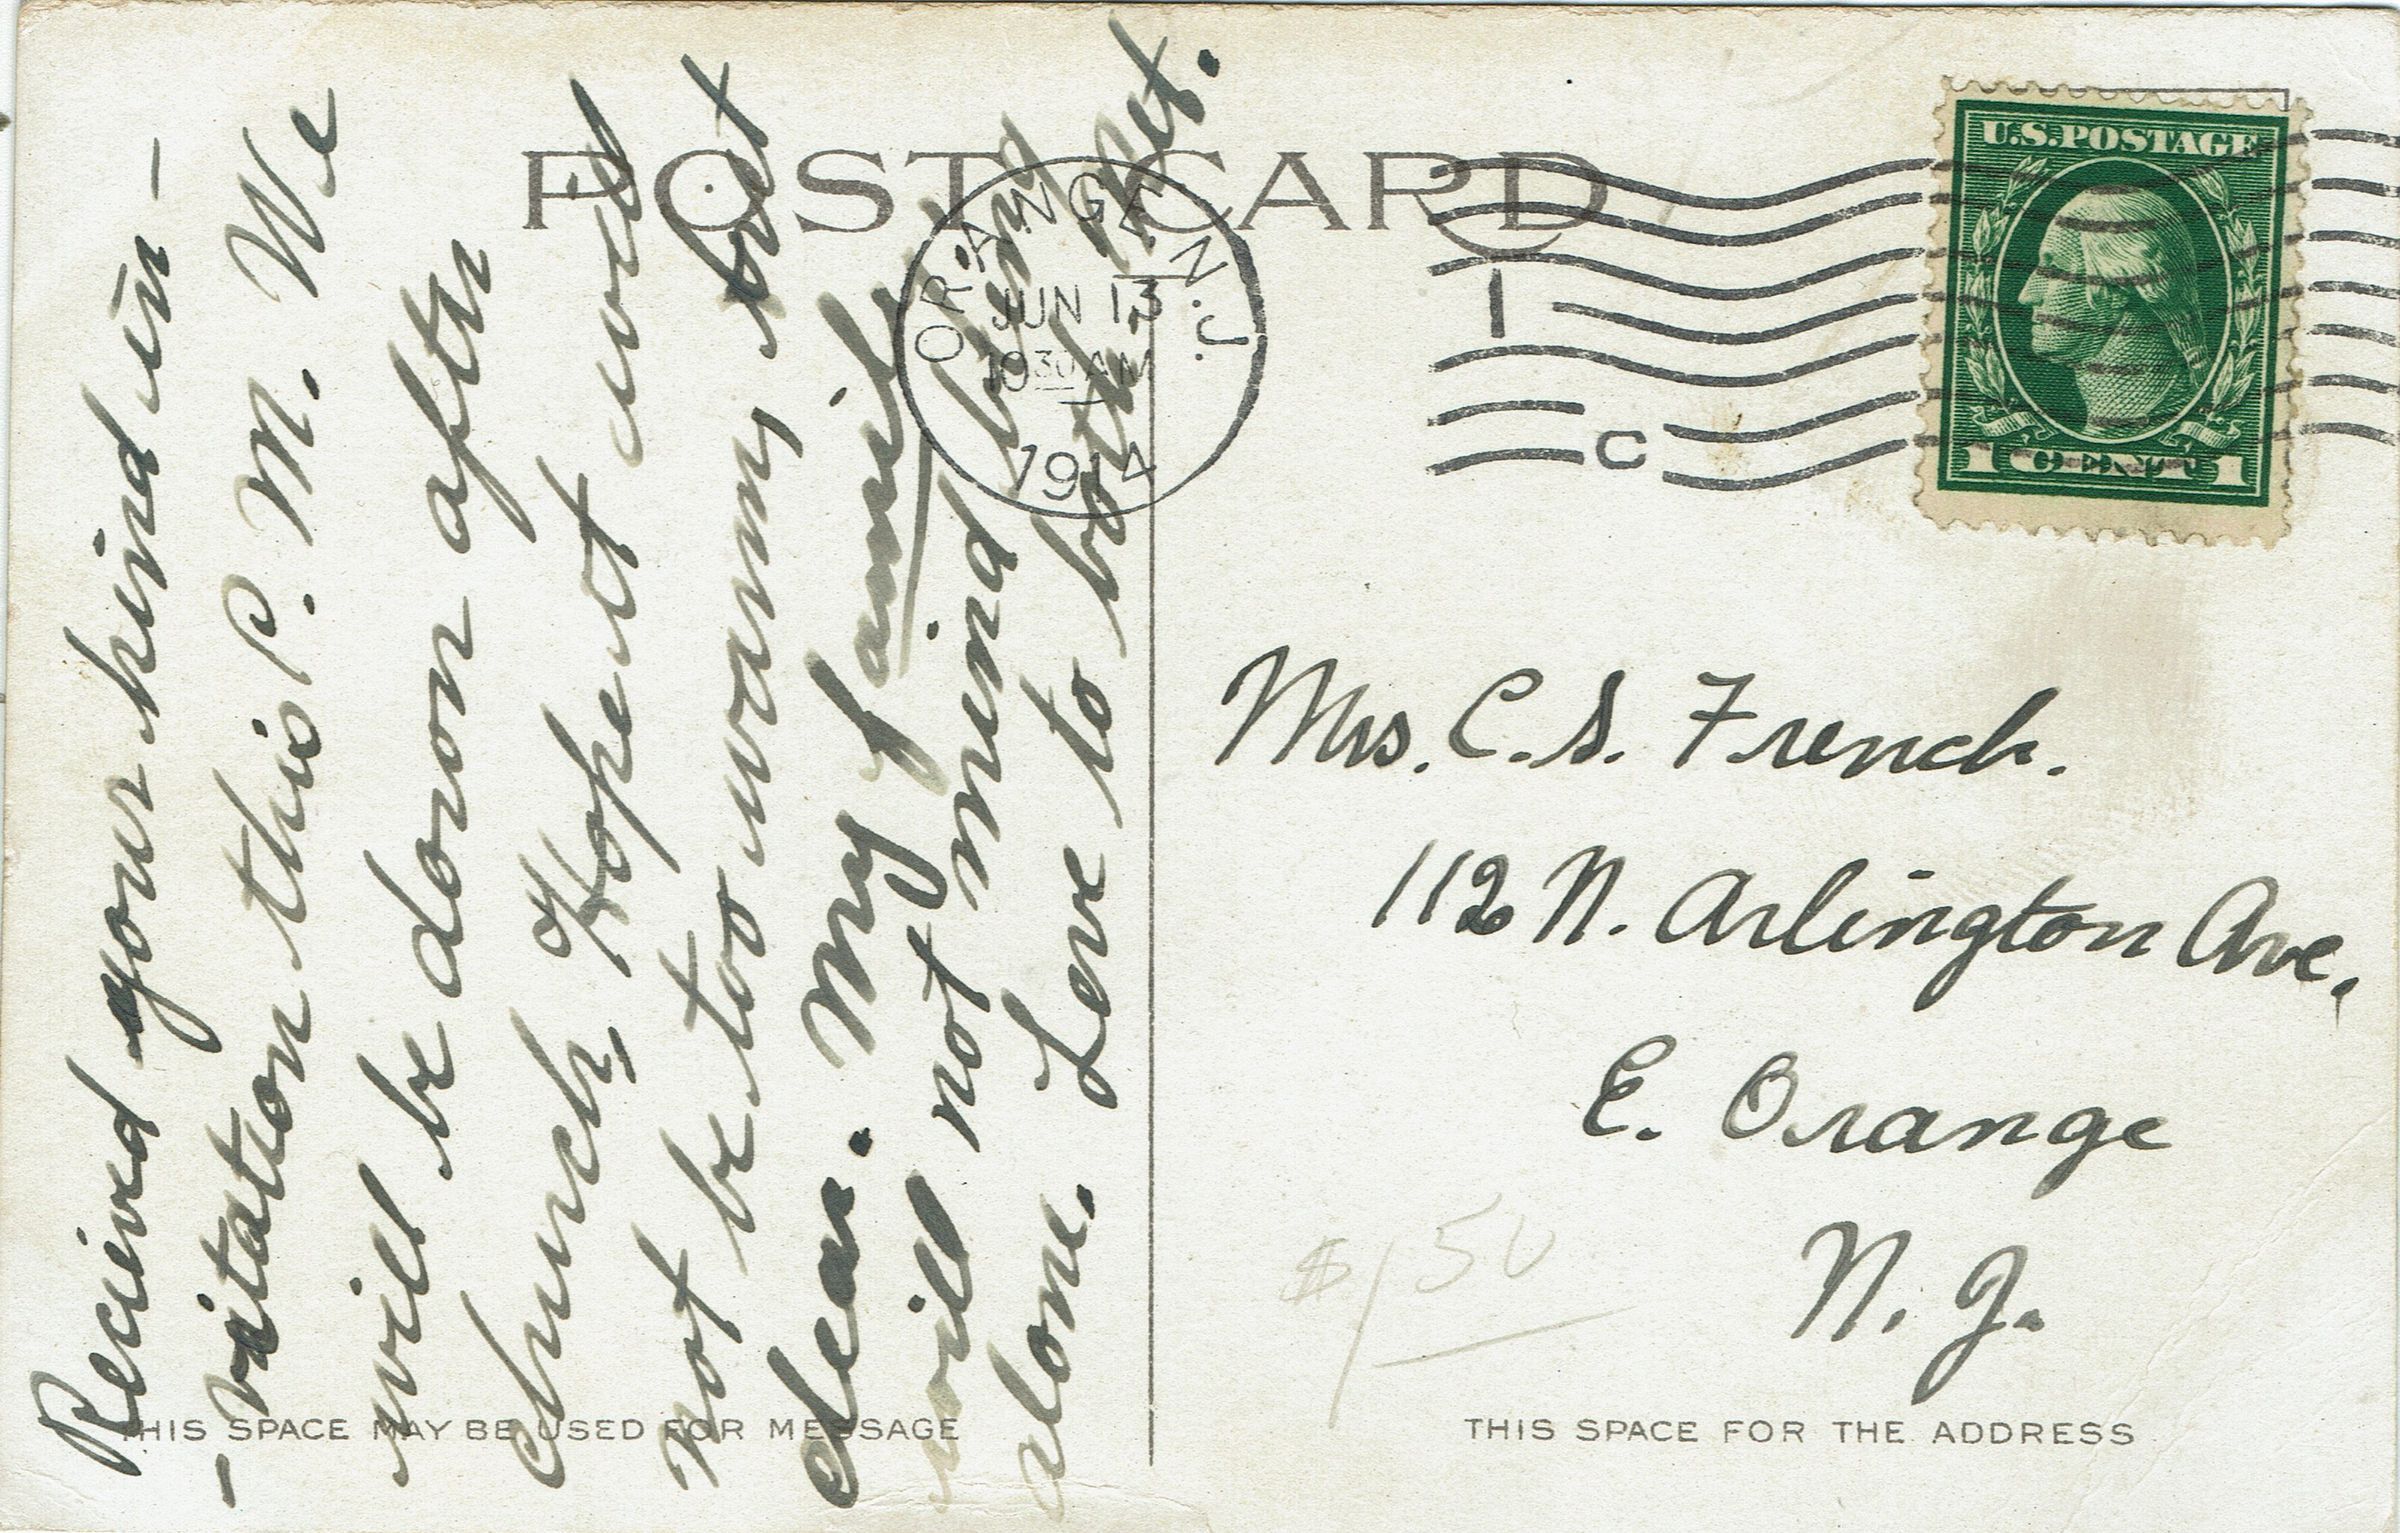 POST CARD
Recieved your kind in-
-vitation this P. M. We
will be down after
church, Hope it will
not be too warm, but
clear. My family
will not mind being
alone. Love to both.
ORANGE N.J.
JUN 13
10 30 AM
1914
1
C
U.S. POSTAGE
1 CENT 1
Mrs. C. S. French.
112 N. Arlington Ave,
E. Orange
N. J.
$1 50
THIS SPACE MAY BE USED FOR MESSAGE
THIS SPACE FOR THE ADDRESS